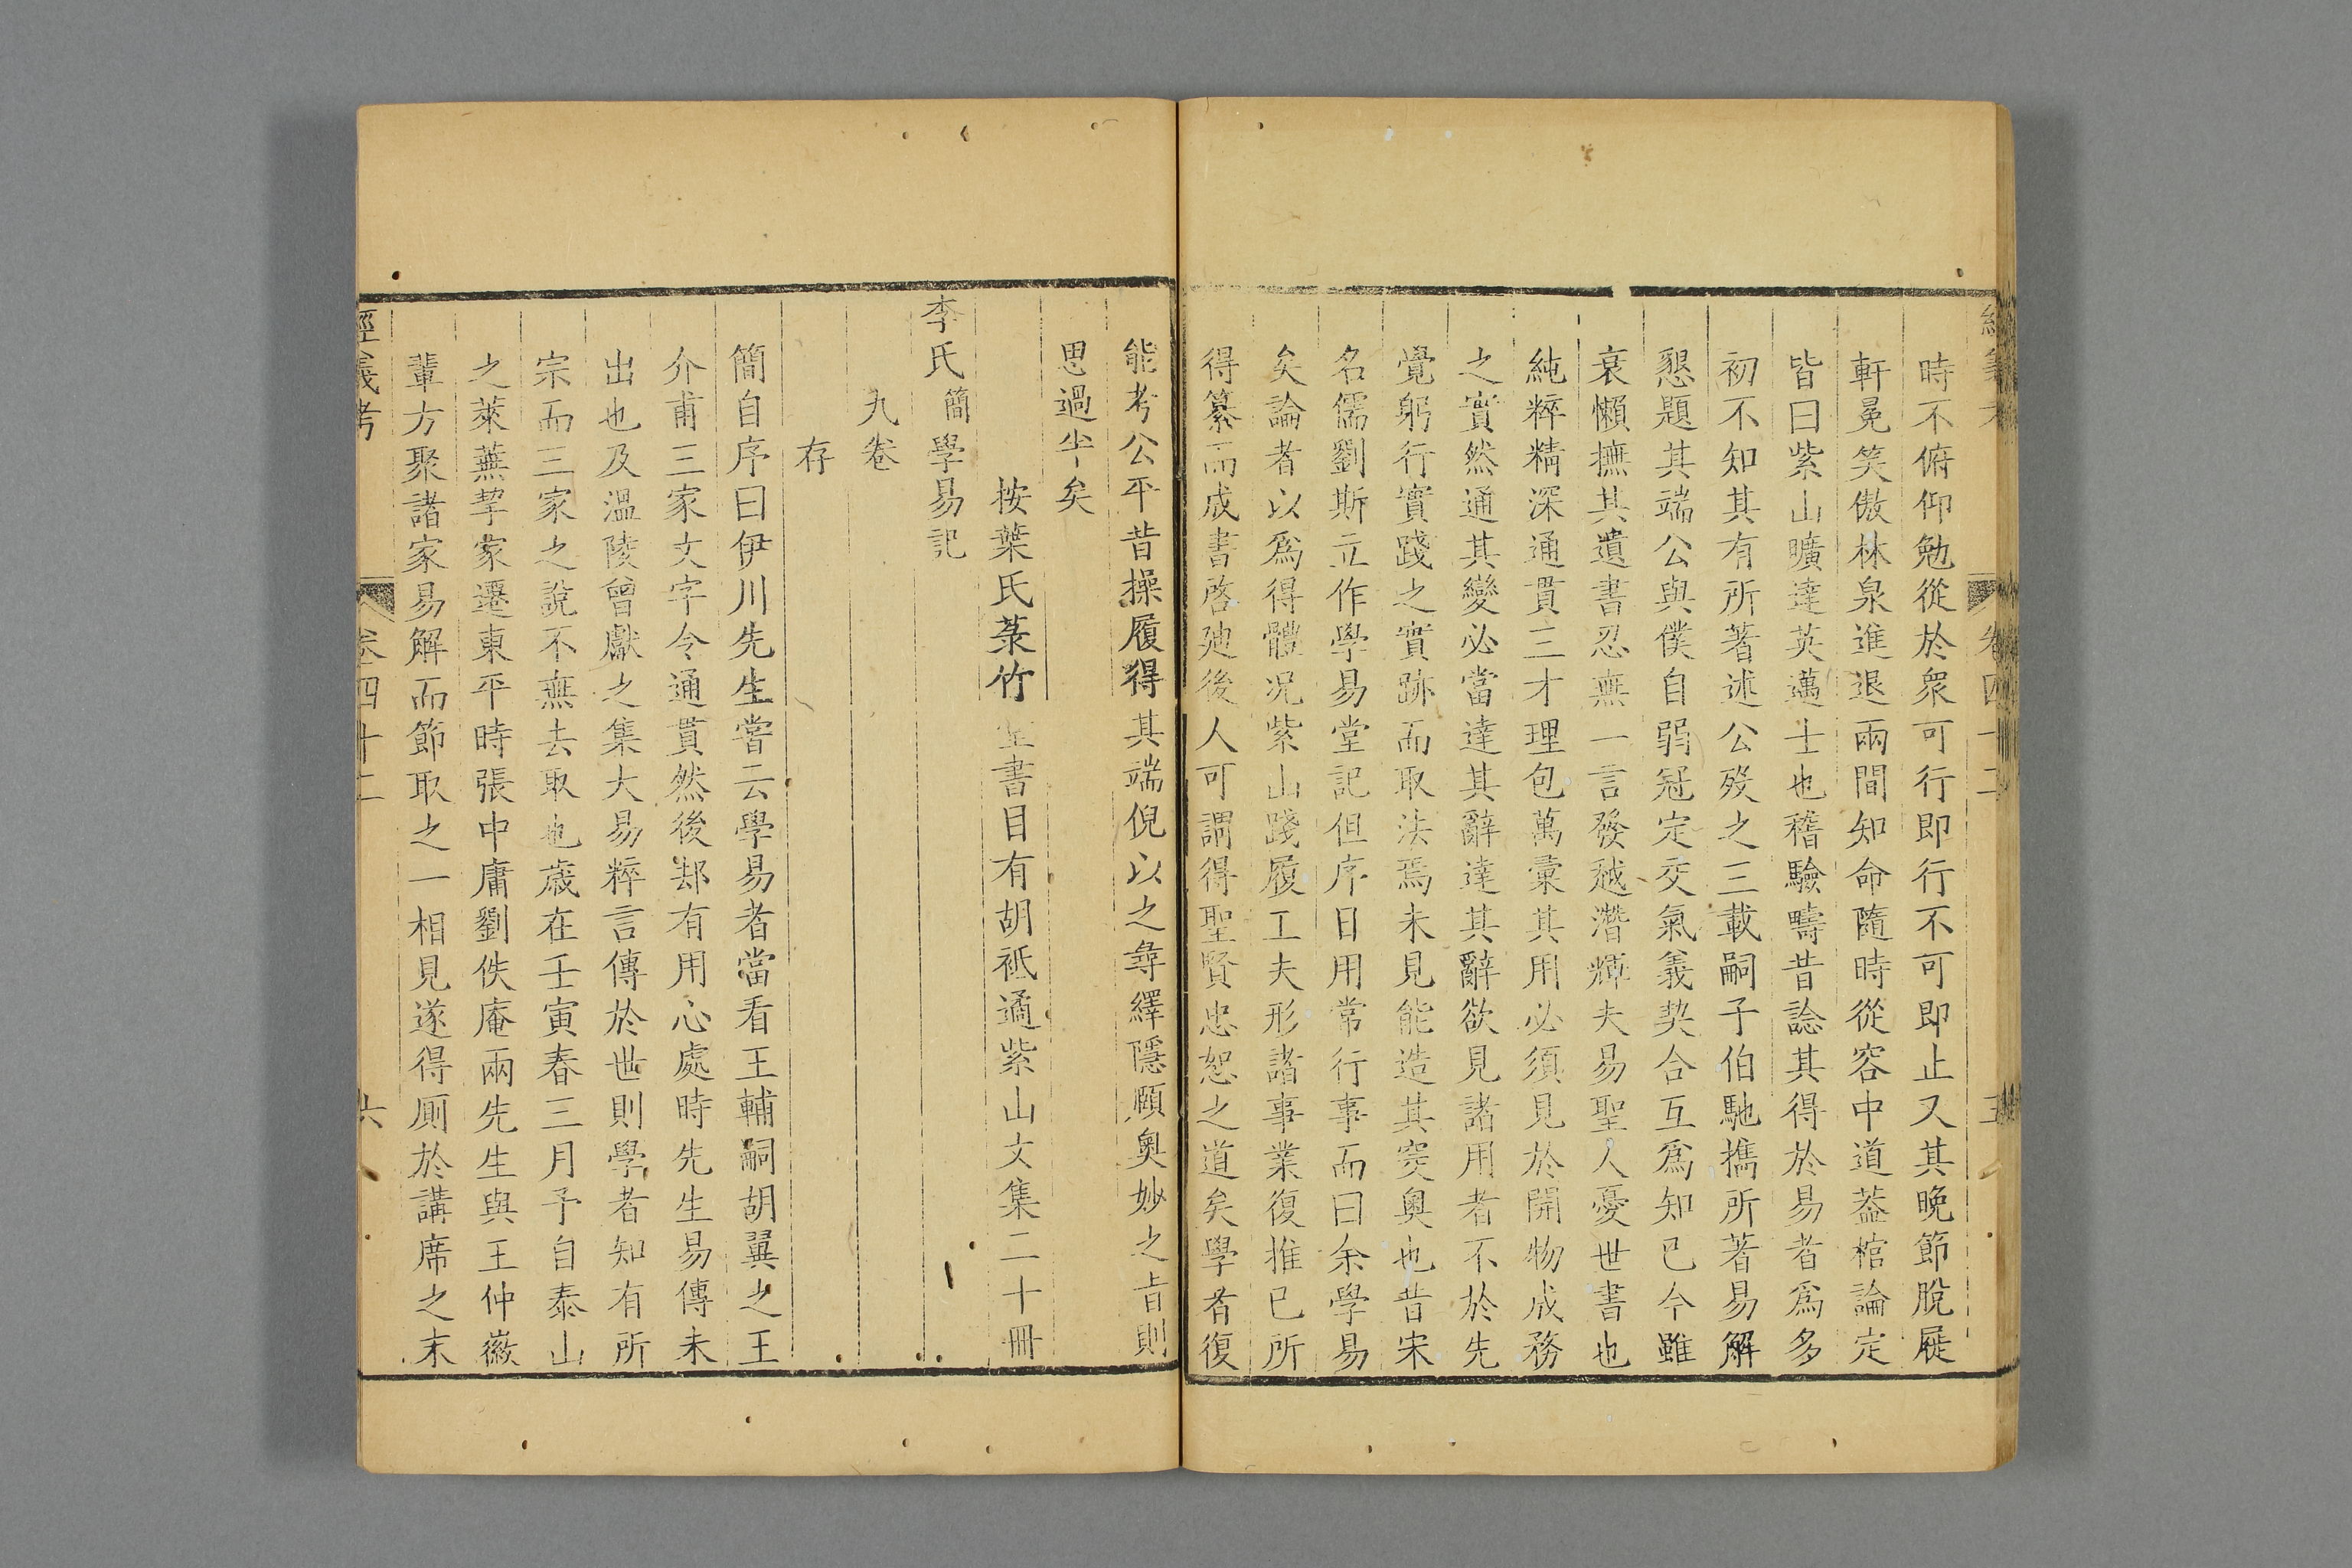 經義考
卷四十二
五
時不俯仰勉從於衆可行即行不可即止又其晚節脫屣
軒冕笑傲林泉進退兩間知命隨時從容中道葢棺論定
皆曰紫山曠達英邁士也稽驗疇昔諗其得於易者爲多
初不知其有所著述公殁之三載嗣子伯馳攜所著易解
懇題其端公與僕自弱冠定交氣義契合互爲知己今雖
衰懶撫其遺書忍無一言發越潛輝夫易聖人憂世書也
純粹精深通貫三才理包萬彙其用必須見於開物成務
之實然通其變必當達其辭達其辭欲見諸用者不於先
覺躬行實踐之實跡而取法焉未見能造其突奧也昔宋
名儒劉斯立作學易堂記但序日用常行事而曰余學易
矣論者以爲得體况紫山踐履工夫形諸事業復推已所
得纂而成書啓廸後人可謂得聖賢忠恕之道矣學者復
能考公平昔操履得其端倪以之尋繹隱賾奧妙之旨則
思過半矣
按葉氏菉竹堂書目有胡祗遹紫山文集二十冊
李氏簡學易記
九卷
存
簡自序曰伊川先生嘗云學易者當看王輔嗣胡翼之王
介甫三家文字令通貫然後却有用心處時先生易傳未
出也及溫陵曾獻之集大易粹言傳於世則學者知有所
宗而三家之說不無去取也歲在壬寅春三月予自泰山
之萊蕪挈家遷東平時張中庸劉佚庵兩先生與王仲徽
輩方聚諸家易解而節取之一相見遂得厠於講席之末
經義考
卷四十二
六